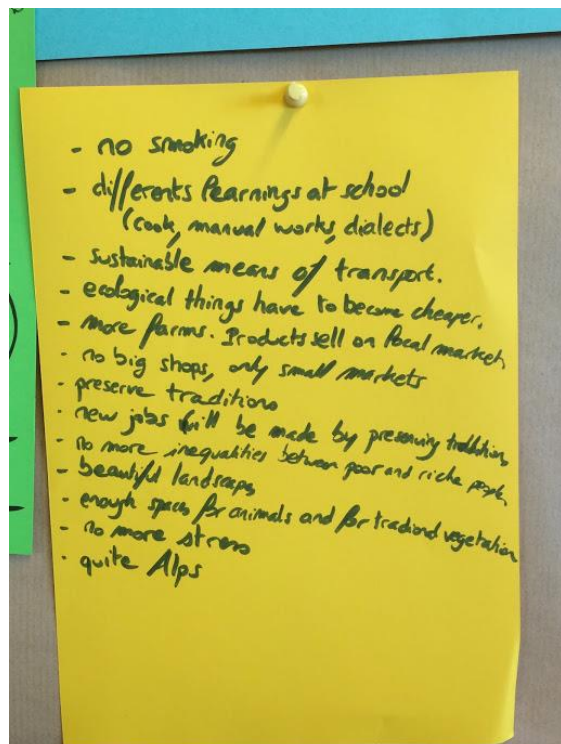 - no smoking
- differents learnings at school
(cook, manual works, dialects)
- sustainable means of transport.
- ecological things have to become cheaper.
- more farms. Products sell on local markets
- no big shops, only small markets
- preserve traditions
- new jobs will be made by preserving traditions
- no more inequalities between poor and riche people
- beautiful landscapes
- enough spaces for animals and for vegetation
- no more stress
- quite Alps